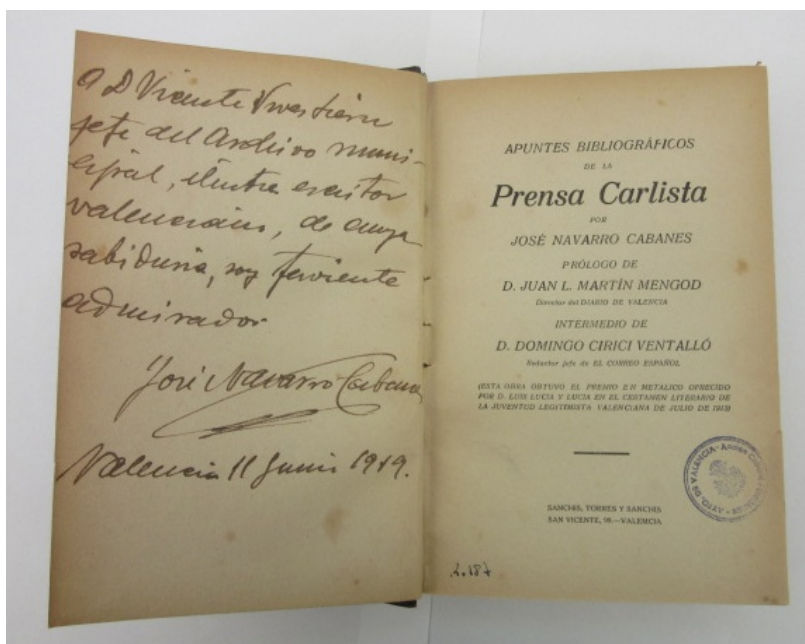 A D Vicente Vives Liern
jefe del Archivo muni-
cipal, ilustre escritor
valenciano, de cuya
sabiduria, soy ferviente
admirador.
José Navarro Cabanes
Valencia 11 Junio 1919.
APUNTES BIBLIOGRÁFICOS
DE LA
Prensa Carlista
POR
JOSÉ NAVARRO CABANES
PRÓLOGO DE
D. JUAN L. MARTÍN MENGOD
Director del DIARIO DE VALENCIA
INTERMEDIO DE
D. DOMINGO CIRICI VENTALLÓ
Redactor jefe de EL CORREO ESPAÑOL
(ESTA OBRA OBTUVO EL PREMIO EN METALICO OFRECIDO
POR D. LUIS LUCIA Y LUCIA EN EL CERTAMEN LITERARIO DE
LA JUVENTUD LEGITIMISTA VALENCIANA DE JULIO DE
AYTO. DE VALENCIA
SANCHIS, TORRES Y SANCHIS
SAN VICENTE, 99.—VALENCIA
2.187